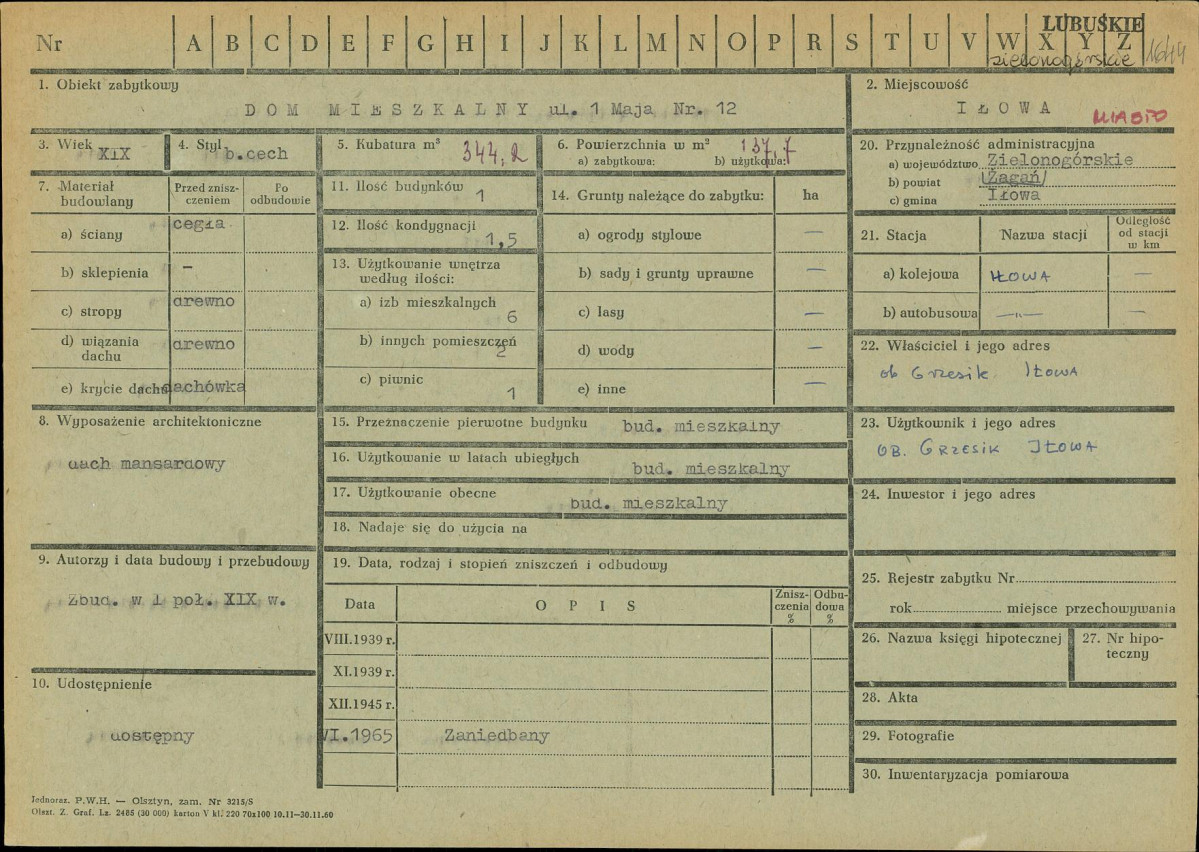 LUBUSKIE
Nr A B C D E F G H I J K L M N O P R S T U V W X Y Z
zielonogórskie 1644
1. Obiekt zabytkowy
DOM MIESZKALNY ul. 1 Maja Nr. 12
2. Miejscowość
IŁOWA
MIASTO
3. Wiek XIX
4. Styl b.cech
5. Kubatura m³ 344,2
6. Powierzchnia w m² 137,7
a) zabytkowa: b) użytkowa:
7. Materiał budowlany
Przed znisz-
czeniem
Po
odbudowie
a) ściany cegła
b) sklepienia –
c) stropy drewno
d) wiązania
dachu drewno
e) krycie dachu dachówka
8. Wyposażenie architektoniczne
dach mansardowy
9. Autorzy i data budowy i przebudowy
Zbud. w 1 poł. XIX w.
10. Udostępnienie
dostępny
11. Ilość budynków
1
12. Ilość kondygnacji
1,5
13. Użytkowanie wnętrza
według ilości:
a) izb mieszkalnych
6
b) innych pomieszczeń
2
c) piwnic
1
14. Grunty należące do zabytku: ha
a) ogrody stylowe —
b) sady i grunty uprawne —
c) lasy —
d) wody —
e) inne —
15. Przeznaczenie pierwotne budynku bud. mieszkalny
16. Użytkowanie w latach ubiegłych bud. mieszkalny
17. Użytkowanie obecne bud. mieszkalny
18. Nadaje się do użycia na
19. Data, rodzaj i stopień zniszczeń i odbudowy
Data OPIS
Znisz-
czenia
%
Odbu-
dowa
%
VIII.1939 r.
XI.1939 r.
XII.1945 r.
VI.1965 Zaniedbany
20. Przynależność administracyjna
a) województwo Zielonogórskie
b) powiat (Żagań)
c) gmina Iłowa
21. Stacja Nazwa stacji
Odległość
od stacji
w km
a) kolejowa IŁOWA —
b) autobusowa —„— —
22. Właściciel i jego adres
ob Grzesik IŁOWA
23. Użytkownik i jego adres
OB. GRZESIK IŁOWA
24. Inwestor i jego adres
25. Rejestr zabytku Nr
rok miejsce przechowywania
26. Nazwa księgi hipotecznej
27. Nr hipo-
teczny
28. Akta
29. Fotografie
30. Inwentaryzacja pomiarowa
Jednoraz. P.W.H. — Olsztyn, zam. Nr 3215/S
Olszt. Z. Graf. Lz. 2485 (30 000) karton V kl. 220 70x100 10.11—30.11.60